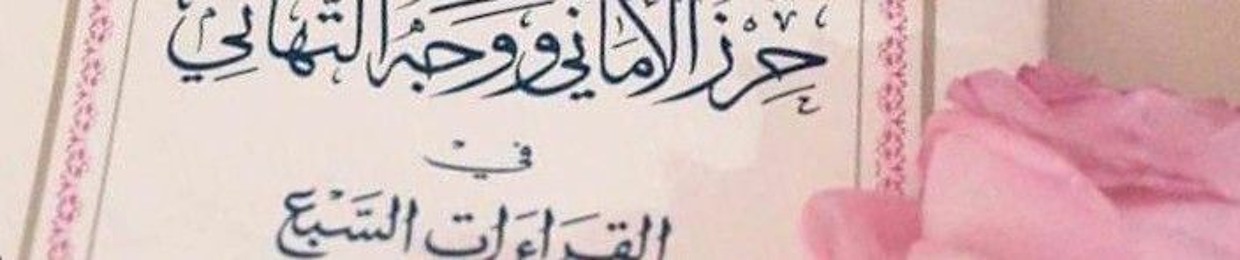 حِرْزُ الْأَمَانِي وَوَجْهُ التَّهَانِي
فِي
القِرَاءَاتِ السَّبْعِ